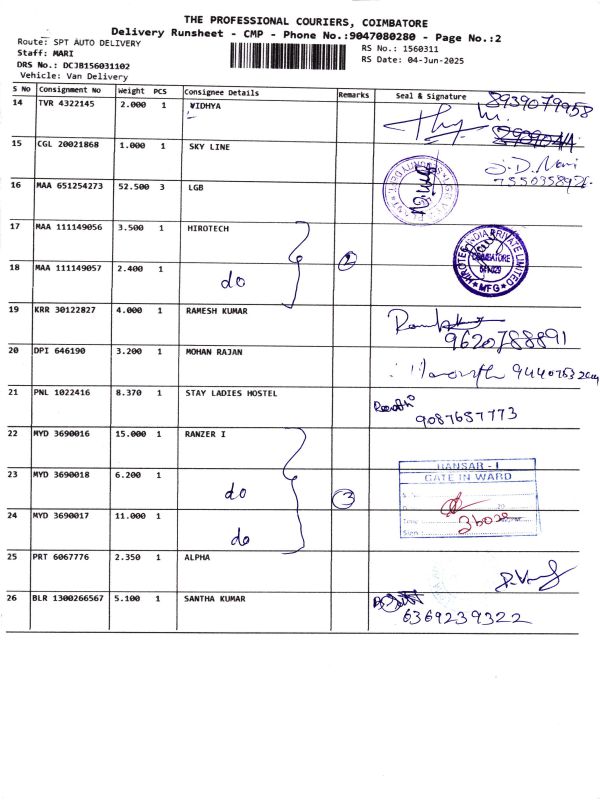 THE PROFESSIONAL COURIERS, COIMBATORE
Delivery Runsheet - CMP - Phone No.:9047080280 - Page No.:2
Route: SPT AUTO DELIVERY
RS No.: 1560311
Staff: MARI
RS Date: 04-Jun-2025
DRS No.: DCJB156031102
Vehicle: Van Delivery
S No Consignment No Weight PCS Consignee Details Remarks Seal & Signature
8939079958
14 TVR 4322145 2.000 1 VIDHYA
15 CGL 20021868 1.000 1 SKY LINE
16 MAA 651254273 52.500 3 LGB
17 MAA 111149056 3.500 1 HIROTECH
2
HIROTEC INDIA PRIVATE LIMITED
COIMBATORE
MFG
18 MAA 111149057 2.400 1 do
19 KRR 30122827 4.000 1 RAMESH KUMAR
9620788891
20 DPI 646190 3.200 1 MOHAN RAJAN
21 PNL 1022416 8.370 1 STAY LADIES HOSTEL
Revathi
9087657773
22 MYD 3690016 15.000 1 RANZER I
RANSAR - I
GATE IN WARD
23 MYD 3690018 6.200 1 do
3
24 MYD 3690017 11.000 1 do
25 PRT 6067776 2.350 1 ALPHA
26 BLR 1300266567 5.100 1 SANTHA KUMAR
6369239322